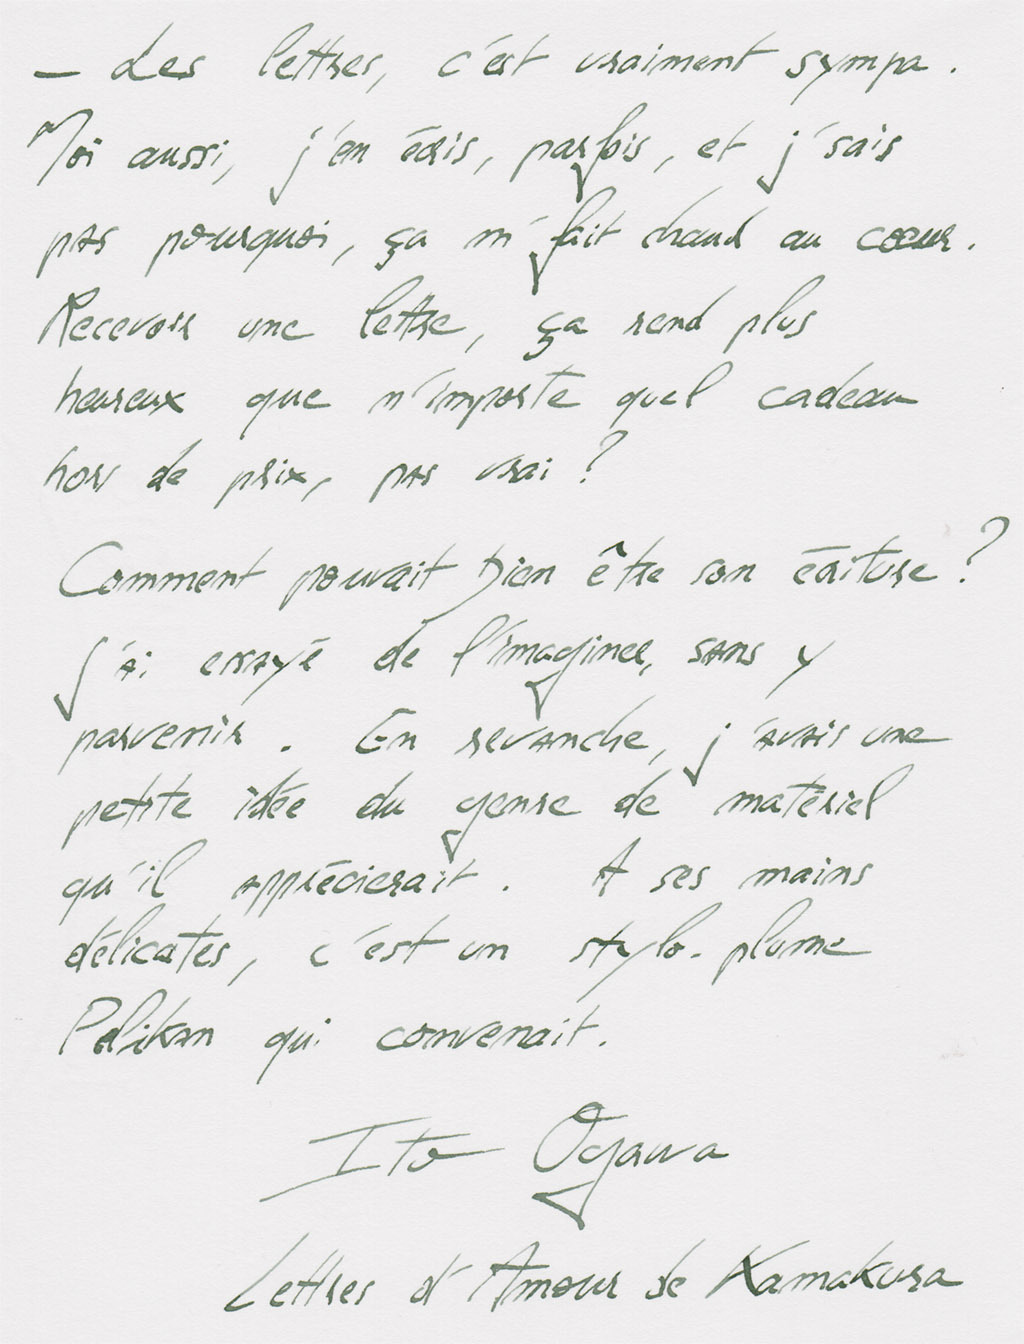 – Les lettres, c'est vraiment sympa.
Moi aussi, j'en écris, parfois, et j'sais
pas pourquoi, ça m'fait chaud au cœur.
Recevoir une lettre, ça rend plus
heureux que n'importe quel cadeau
hors de prix, pas vrai ?
Comment pouvait bien être son écriture ?
J'ai essayé de l'imaginer, sans y
parvenir. En revanche, j'avais une
petite idée du genre de matériel
qu'il apprécierait. A ses mains
délicates, c'est un stylo-plume
Pelikan qui convenait.
Ito Ogawa
Lettres d'Amour de Kamakura